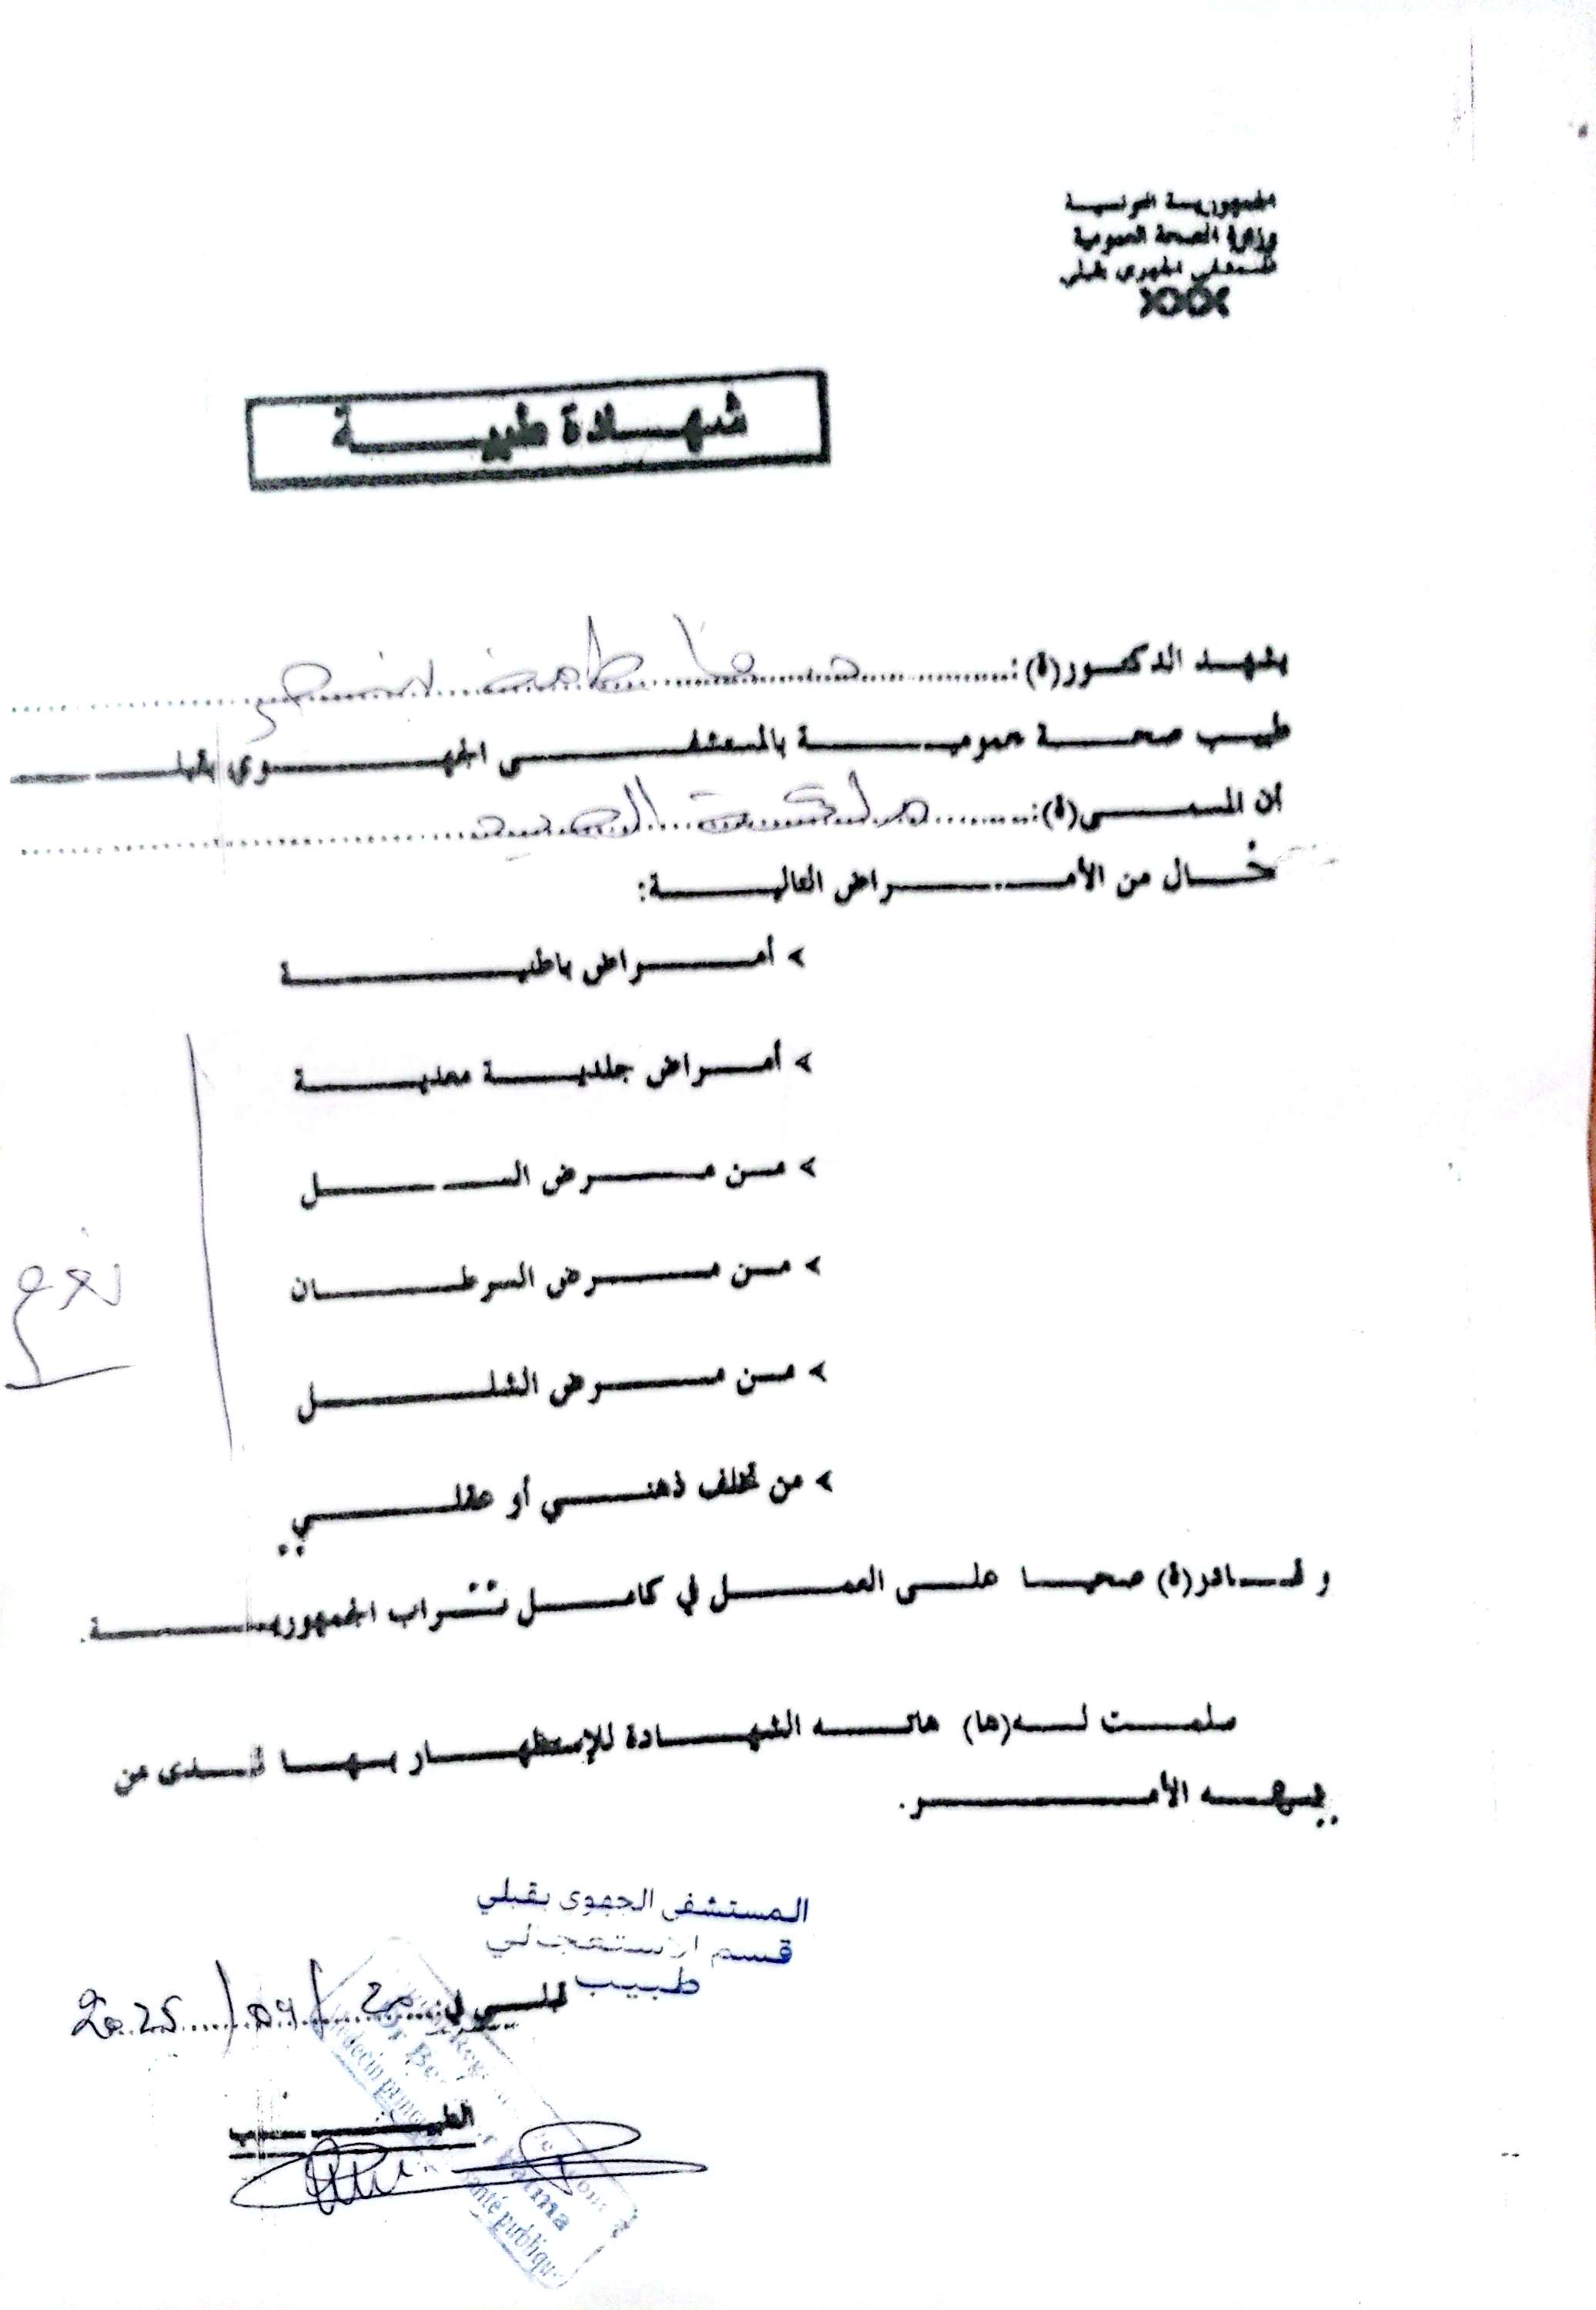 الجمهورية التونسية
وزارة الصحة العمومية
المستشفى الجهوي بقبلي
شهادة طبية
يشهد الدكتور(ة): فاطمة
طبيب صحة عمومية بالمستشفى الجهوي بقبلي
أن المسمى(ة):
خال من الأمراض التالية:
أمراض باطنية
أمراض جلدية معدية
من مرض السل
من مرض السرطان
من مرض الشلل
من تخلف ذهني أو عقلي
نعم
و قادر(ة) صحيا على العمل في كامل تراب الجمهورية.
سلمت له(ها) هاته الشهادة للإستظهار بها لدى من
يهمه الأمر.
المستشفى الجهوي بقبلي
قسم الاستعجالي
طبيب
قبلي في: /04/2025
الطبيب
Dr
Fatma
santé publique